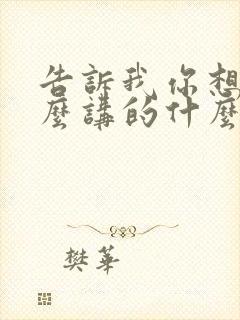 告訴我你想
麼講的什麼
樊華